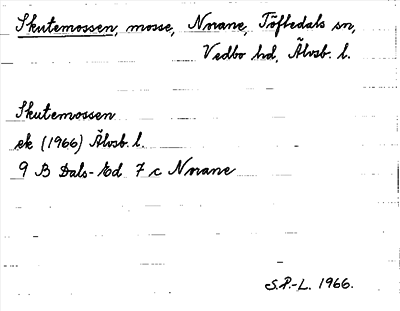 Skutemossen, mosse, Nnane, Töftedals sn,
Vedbo hd, Älvsb. l.
Skutemossen
ek (1966) Älvsb l.
9 B Dals-Ed 7 c Nnane
S.P.-L. 1966.